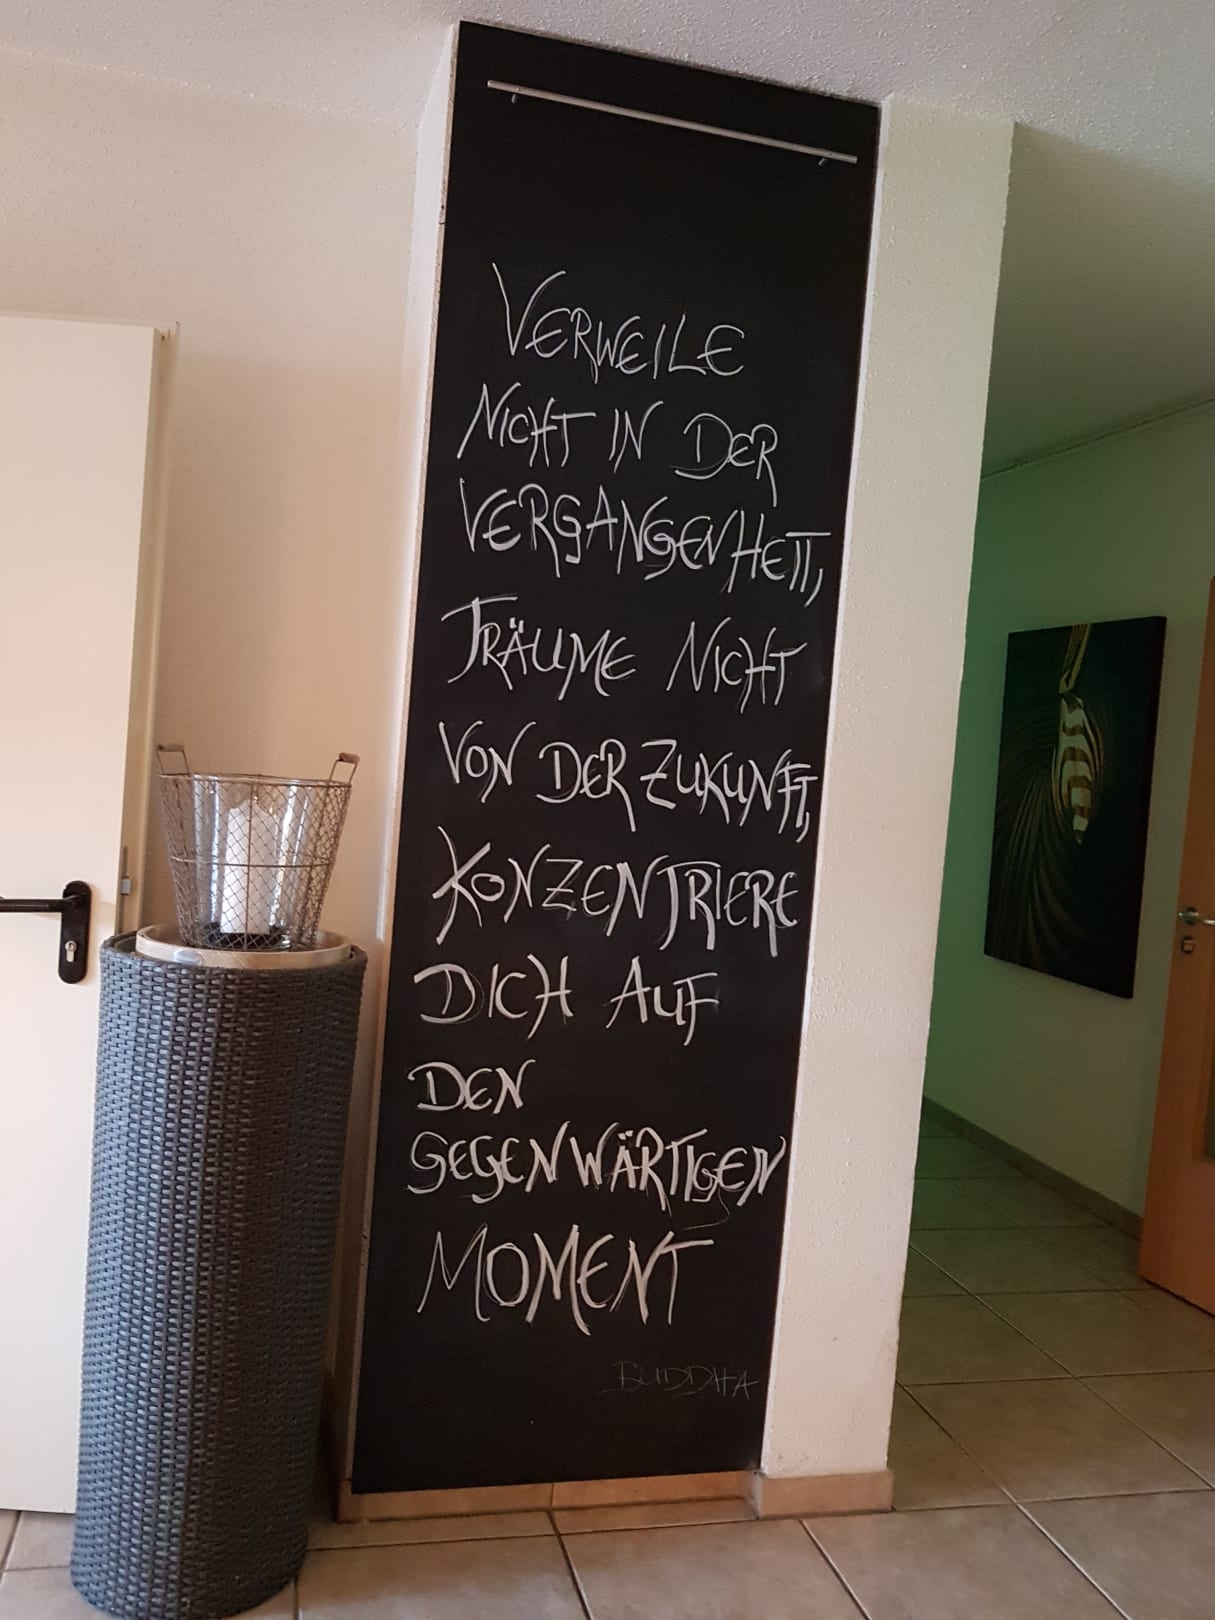 VERWEILE
NICHT IN DER
VERGANGENHEIT,
TRÄUME NICHT
VON DER ZUKUNFT,
KONZENTRIERE
DICH AUF
DEN
GEGENWÄRTIGEN
MOMENT
BUDDHA